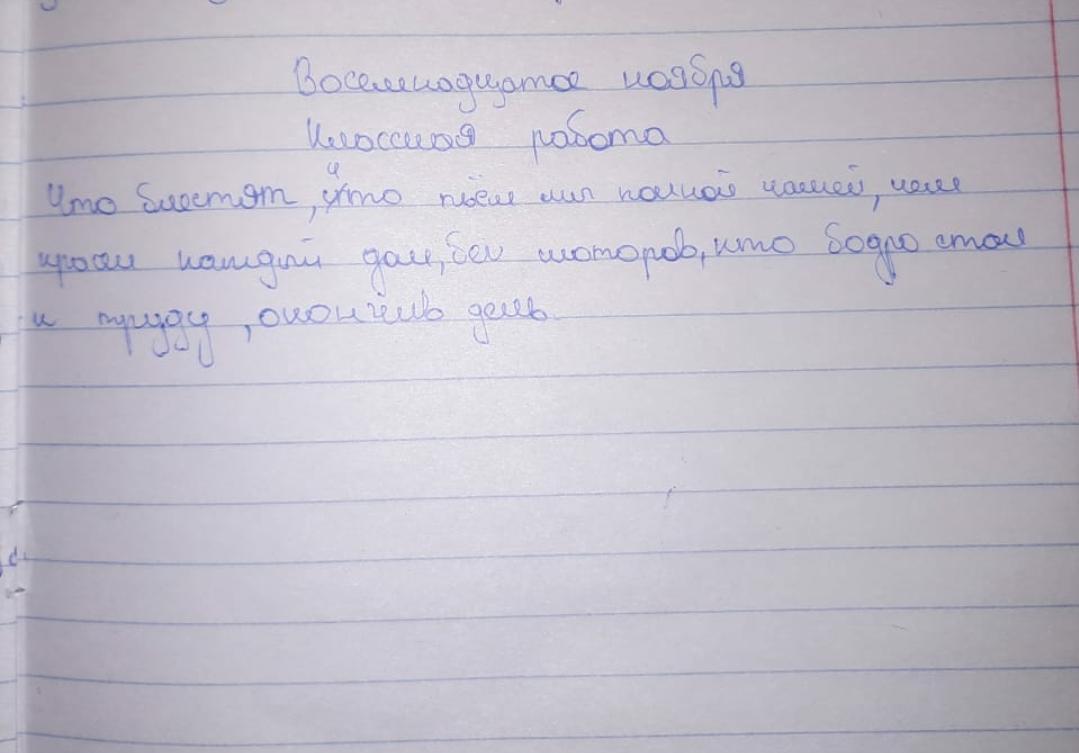 Восемнадцатое ноября
Классная работа
Что блестят, что пьём мы полной чашей, чем
красен каждый дом, без моторов, кто бодро стал
к труду, окончив день